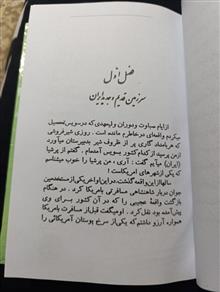 فصل اول
سرزمین قدیم و جدید ایران
از ایام صباوت و دوران ولیعهدی که در سویس تحصیل
میکردم واقعه‌ای در خاطرم مانده است. روزی شیرفروشی
که هر بامداد گاری پر از ظروف شیر بدبیرستان میآورد
از من پرسید از کدام کشور بسویس آمده‌ام. گفتم از پرشیا
(ایران) میآیم گفت: آری، من پرشیا را خوب میشناسم
یکی از شهرهای امریکاست!
سالها از این واقعه گذشت. در این اواخر یکی از مستخدمین
جوان دربار شاهنشاهی مسافرتی بامریکا کرد. در هنگام
بازگشت واقعهٔ عجیبی را که در آن کشور برای وی
پیش‌آمده بود نقل کرد. او میگفت قبل از مسافرت بامریکا
همواره آرزو داشتم که یکی از سرخ پوستان آمریکائی را